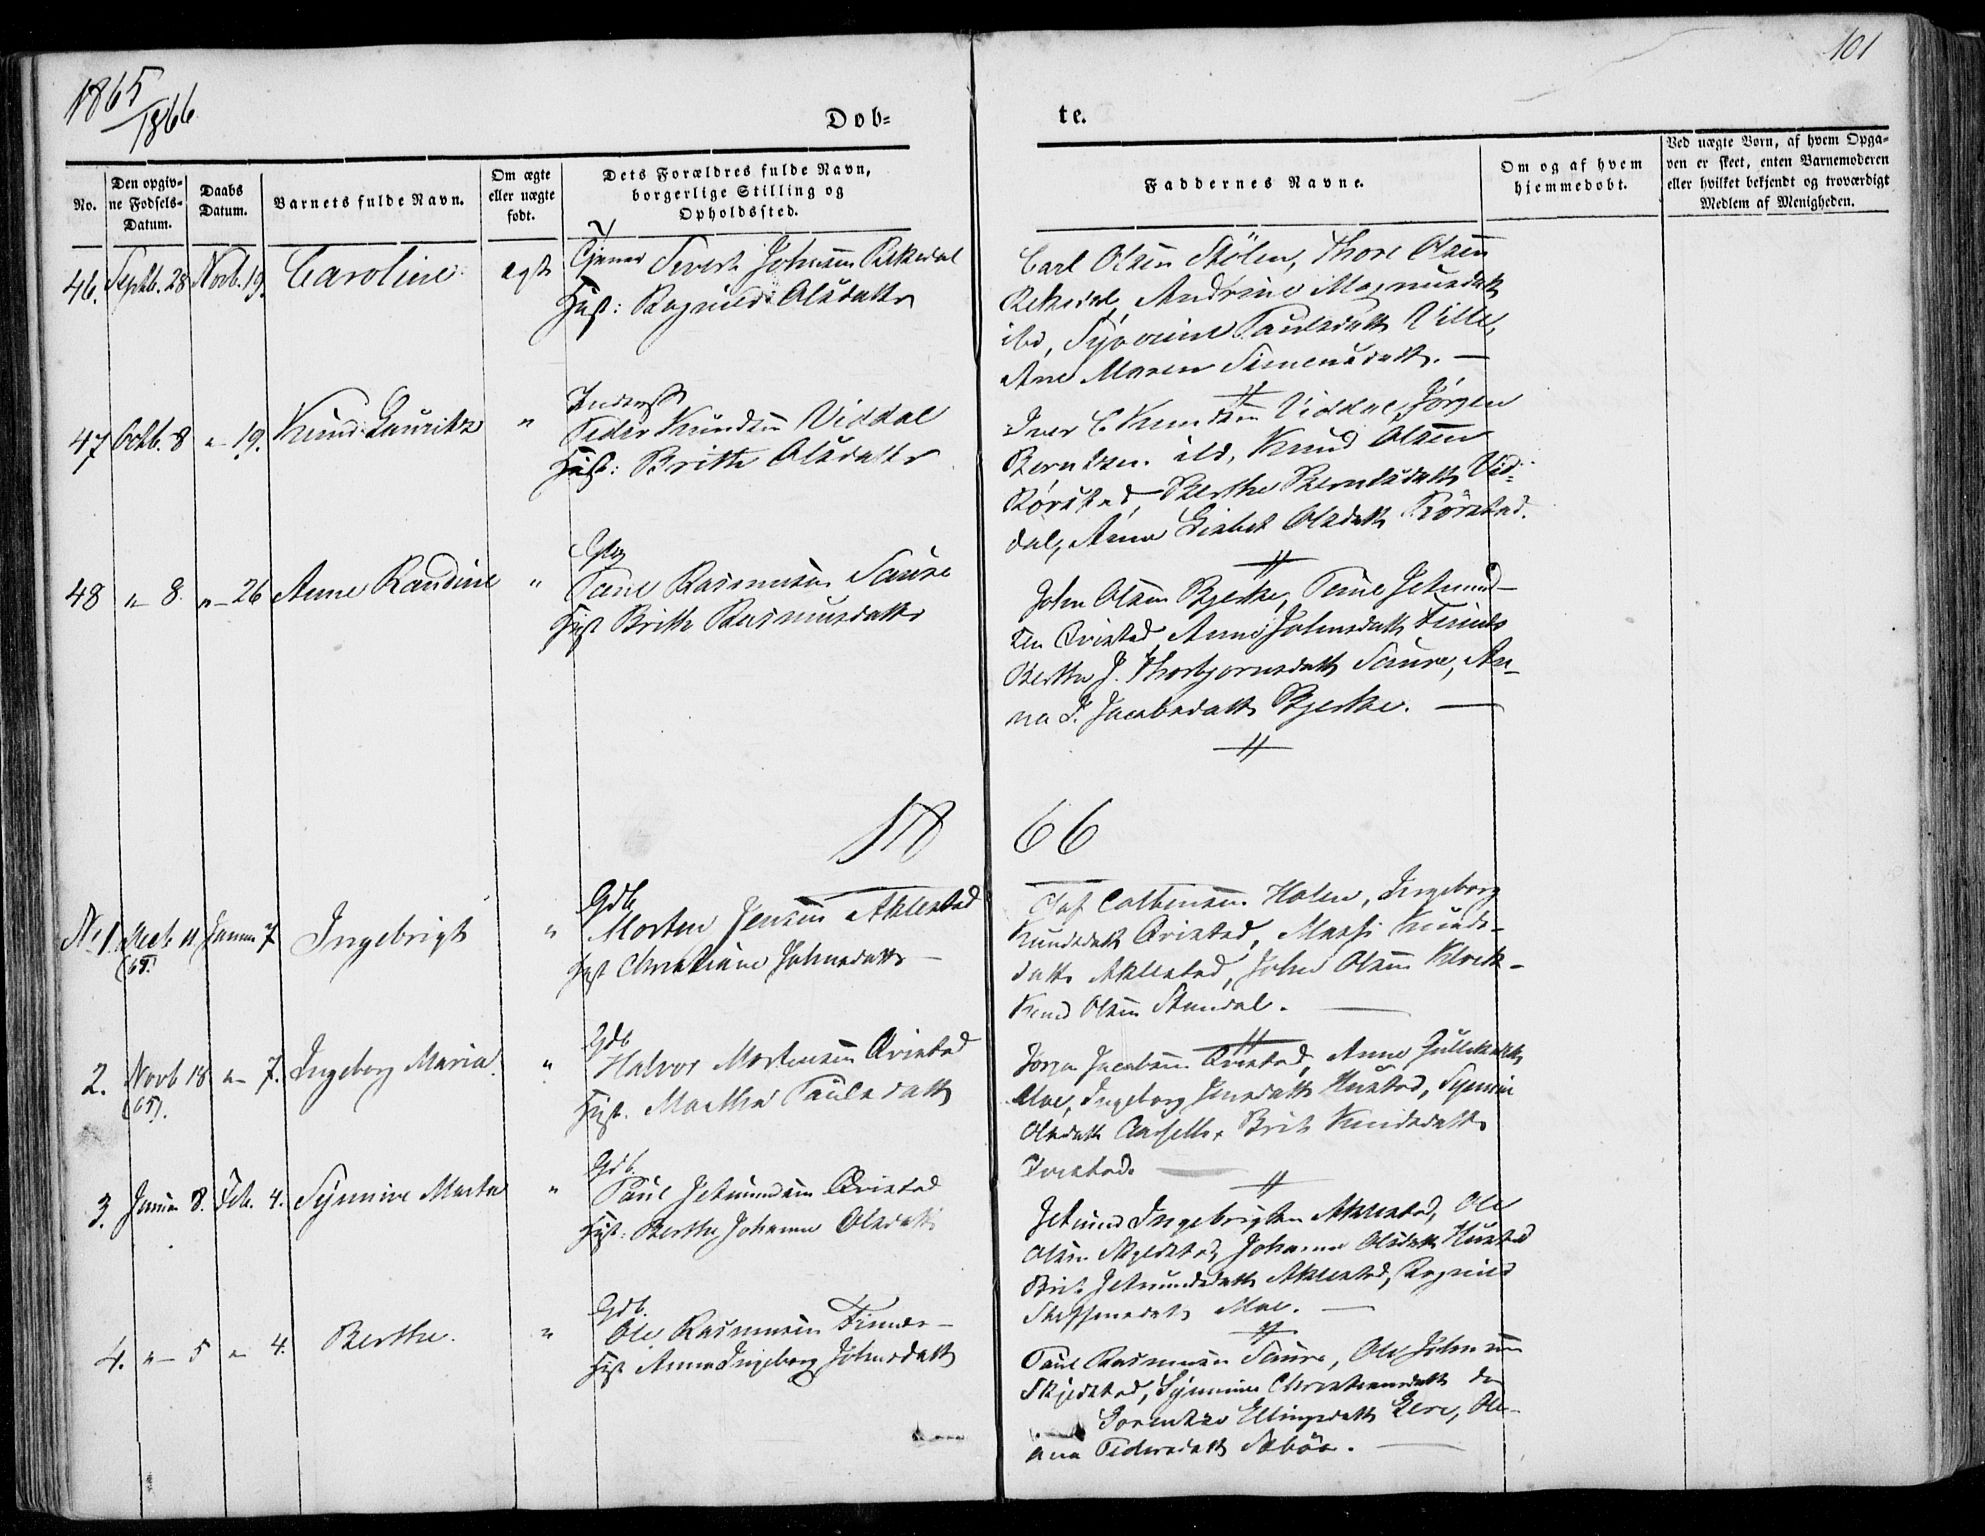 101
1865
1866
Døb=
te.
No.
Den opgiv=
ne Fødsels=
Datum.
Daabs
Datum.
Barnets fulde Navn.
Om ægte
eller uægte
født.
Dets Forældres fulde Navn,
borgerlige Stilling og
Opholdssted.
Faddernes Navne.
Om og af hvem
hjemmedøbt.
Ved uægte Børn, af hvem Opga=
ven er skeet, enten Barnemoderen
eller hvilket bekjendt og troværdigt
Medlem af Menigheden.
46. Septb. 28 Novb. 19. Caroline ægte
Tjener Sivert Johnsen Rekkedal
Hust: Ragnild Olsdatter
Carl Olsen Stölen, Thore Olsen
Rekkedal, Andrine Magnusdatt
ibd, Paulsdatt
Ane Maren Simensdatt. —
47 Octb. 8 " 19. Knud Lauritz "
Peder Knudsen Viddal
Hust: Brithe Olsdatter
Iver C. Knudsen Viddal, Jörgen
Berntsen ibd, Knud Olsen
Rörstad, Berthe Berntsdatt Vid-
dal, Anne Lisbet Olsdatt Rörstad.
48 " 8. " 26 Anne Randine "
Paul Rasmusen Saure
Hust Brithe Rasmusdatter
John Olsen Bjerke, Paul Jetmund-
sen Qvistad, Anne Johnsdatt Finnes
Berthe J. Thorbjornsdatt Saure, An-
na P. Jacobsdatt Bjerke. —
18 66
No 1. Decb. 11 Januar 7 Ingebrigt "
(65.)
Gdb
Morten Jensen Aklestad
Hust Christiane Johnsdatter —
Olaf Colbensen Holen, Ingeborg
Knudsdatt Qvistad, Marthe Knuds-
datt Aklestad, John Olsen
Knud Olsen Standal. —
2. Novb 18 " 7. Ingeborg Maria. "
(65).
Gdb
Halvor Mortensen Qvistad
Hust. Marthe Paulsdatt
Jacobsen Qvistad, Anne
Moe, Ingeborg Jensdatt Hustad, Synnive
Olsdatt Aarseth, Brit Knudsdatt
Qvistad. —
3. Januar 8. Feb. 4. Synnive Marta "
Gdb.
Paul Jetmundsen Qvistad
Hust: Berthe Johanne Olsdatt
Jetmund Ingebrigtsen Aklestad, Ole
Olsen Johanne Olsdatt Hustad
Brit Jetmundsdatt Aklestad, Ragnild
Steffensdatt Moe. —
4. " 5 " 4. Berthe. "
Gdb.
Ole Rasmusen Finnes —
Hust Anne Ingeborg Johnsdatt
Paul Rasmusen Saure, Ole Johnsen
Skjedstad, Synnive Christiansdatt do
Lorentze Ellingsdatt Ole-
ana Pedersdatt Sæbøe. —